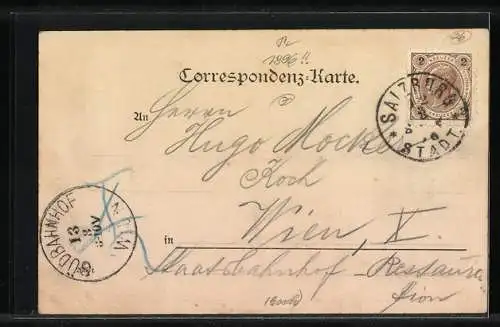 1896!!
Correspondenz-Karte.
2 2
SALZBURG
STADT
An Herrn
Hugo Mocke
Koch
in Wien, X.
Staatsbahnhof-Restaura-
tion
SÜDBAHNHOF
13
8